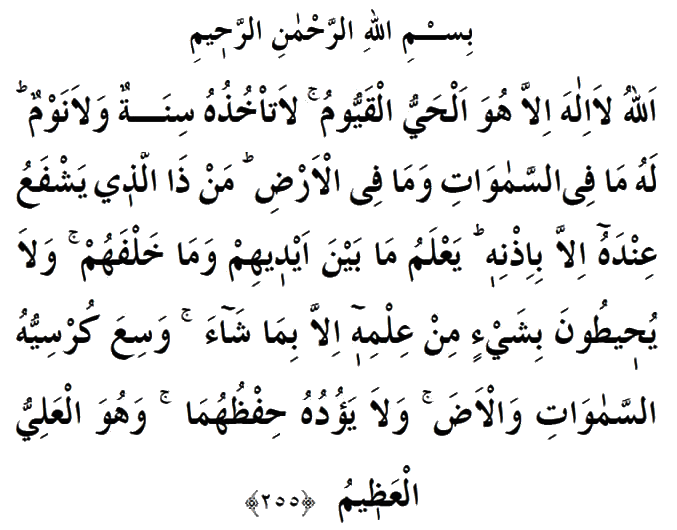 بِسْــمِ اللهِ الرَّحْمٰنِ الرَّحٖيمِ
اَللهُ لاَاِلٰهَ اِلاَّ هُوَ اَلْحَىُّ الْقَيُّومُ ۚ لاَتَاْخُذُهُ سِنَـــةٌ وَلاَنَوْمٌ ؕ
لَهُ مَا فِى السَّمٰوَاتِ وَمَا فِى الْاَرْضِ ؕ مَنْ ذَا الَّذٖي يَشْفَعُ
عِنْدَهُٓ اِلاَّ بِاِذْنِهٖ ؕ يَعْلَمُ مَا بَيْنَ اَيْدٖيهِمْ وَمَا خَلْفَهُمْ ۚ وَلاَ
يُحٖيطُونَ بِشَيْءٍ مِنْ عِلْمِهٖٓ اِلاَّ بِمَا شَآءَ ۚ وَسِعَ كُرْسِيُّهُ
السَّمٰوَاتِ وَالْاَضَ ۚ وَلاَ يَؤُدُهُ حِفْظُهُمَا ۚ وَهُوَ الْعَلِيُّ
الْعَظٖيمُ ﴿٢٥٥﴾